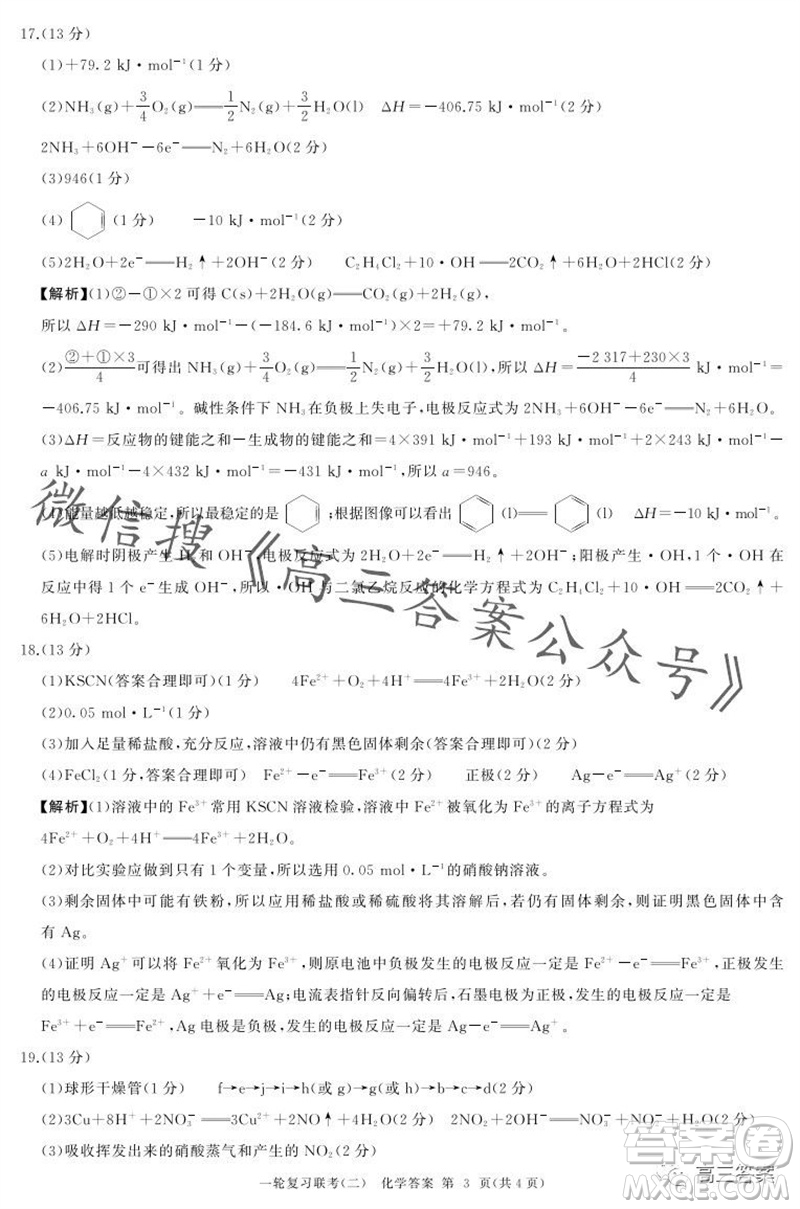 17.(13 分)
(1)+79.2 kJ·mol⁻¹(1 分)
(2)NH₃(g)+3/4O₂(g)══1/2N₂(g)+3/2H₂O(l) ΔH=−406.75 kJ·mol⁻¹(2 分)
2NH₃+6OH⁻−6e⁻══N₂+6H₂O(2 分)
(3)946(1 分)
(4) (1 分) −10 kJ·mol⁻¹(2 分)
(5)2H₂O+2e⁻══H₂↑+2OH⁻(2 分) C₂H₄Cl₂+10·OH══2CO₂↑+6H₂O+2HCl(2 分)
【解析】(1)②−①×2 可得 C(s)+2H₂O(g)══CO₂(g)+2H₂(g),
所以 ΔH=−290 kJ·mol⁻¹−(−184.6 kJ·mol⁻¹)×2=+79.2 kJ·mol⁻¹。
(2)②+①×3/4可得出 NH₃(g)+3/4O₂(g)══1/2N₂(g)+3/2H₂O(l),所以 ΔH=−2 317+230×3/4 kJ·mol⁻¹=
−406.75 kJ·mol⁻¹。碱性条件下 NH₃在负极上失电子,电极反应式为 2NH₃+6OH⁻−6e⁻══N₂+6H₂O。
(3)ΔH=反应物的键能之和−生成物的键能之和=4×391 kJ·mol⁻¹+193 kJ·mol⁻¹+2×243 kJ·mol⁻¹−
a kJ·mol⁻¹−4×432 kJ·mol⁻¹=−431 kJ·mol⁻¹,所以 a=946。
(4)能量越低越稳定,所以最稳定的是 ;根据图像可以看出 (l)══ (l) ΔH=−10 kJ·mol⁻¹。
(5)电解时阴极产生 H₂和 OH⁻,电极反应式为 2H₂O+2e⁻══H₂↑+2OH⁻;阳极产生·OH,1个·OH 在
反应中得 1个 e⁻生成 OH⁻,所以·OH 与二氯乙烷反应的化学方程式为 C₂H₄Cl₂+10·OH══2CO₂↑+
6H₂O+2HCl。
18.(13 分)
(1)KSCN(答案合理即可)(1 分) 4Fe²⁺+O₂+4H⁺══4Fe³⁺+2H₂O(2 分)
(2)0.05 mol·L⁻¹(1 分)
(3)加入足量稀盐酸,充分反应,溶液中仍有黑色固体剩余(答案合理即可)(2 分)
(4)FeCl₂(1 分,答案合理即可) Fe²⁺−e⁻══Fe³⁺(2 分) 正极(2 分) Ag−e⁻══Ag⁺(2 分)
【解析】(1)溶液中的 Fe³⁺常用 KSCN 溶液检验,溶液中 Fe²⁺被氧化为 Fe³⁺的离子方程式为
4Fe²⁺+O₂+4H⁺══4Fe³⁺+2H₂O。
(2)对比实验应做到只有 1 个变量,所以选用 0.05 mol·L⁻¹的硝酸钠溶液。
(3)剩余固体中可能有铁粉,所以应用稀盐酸或稀硫酸将其溶解后,若仍有固体剩余,则证明黑色固体中含
有 Ag。
(4)证明 Ag⁺可以将 Fe²⁺氧化为 Fe³⁺,则原电池中负极发生的电极反应一定是 Fe²⁺−e⁻══Fe³⁺,正极发生
的电极反应一定是 Ag⁺+e⁻══Ag;电流表指针偏转后,石墨电极为正极,发生的电极反应一定是
Fe³⁺+e⁻══Fe²⁺,Ag 电极是负极,发生的电极反应一定是 Ag−e⁻══Ag⁺。
19.(13 分)
(1)球形干燥管(1 分) f→e→j→i→h(或 g)→g(或 h)→k→c→d(2 分)
(2)3Cu+8H⁺+2NO₃⁻══3Cu²⁺+2NO↑+4H₂O(2 分) 2NO₂+2OH⁻══NO₃⁻+NO₂⁻+H₂O(2 分)
(3)吸收挥发出来的硝酸蒸气和产生的 NO₂(2 分)
一轮复习联考(二) 化学答案 第 3 页(共 4 页)
微信搜《高三答案公众号》
答案圈
高三答案
MXQE.COM